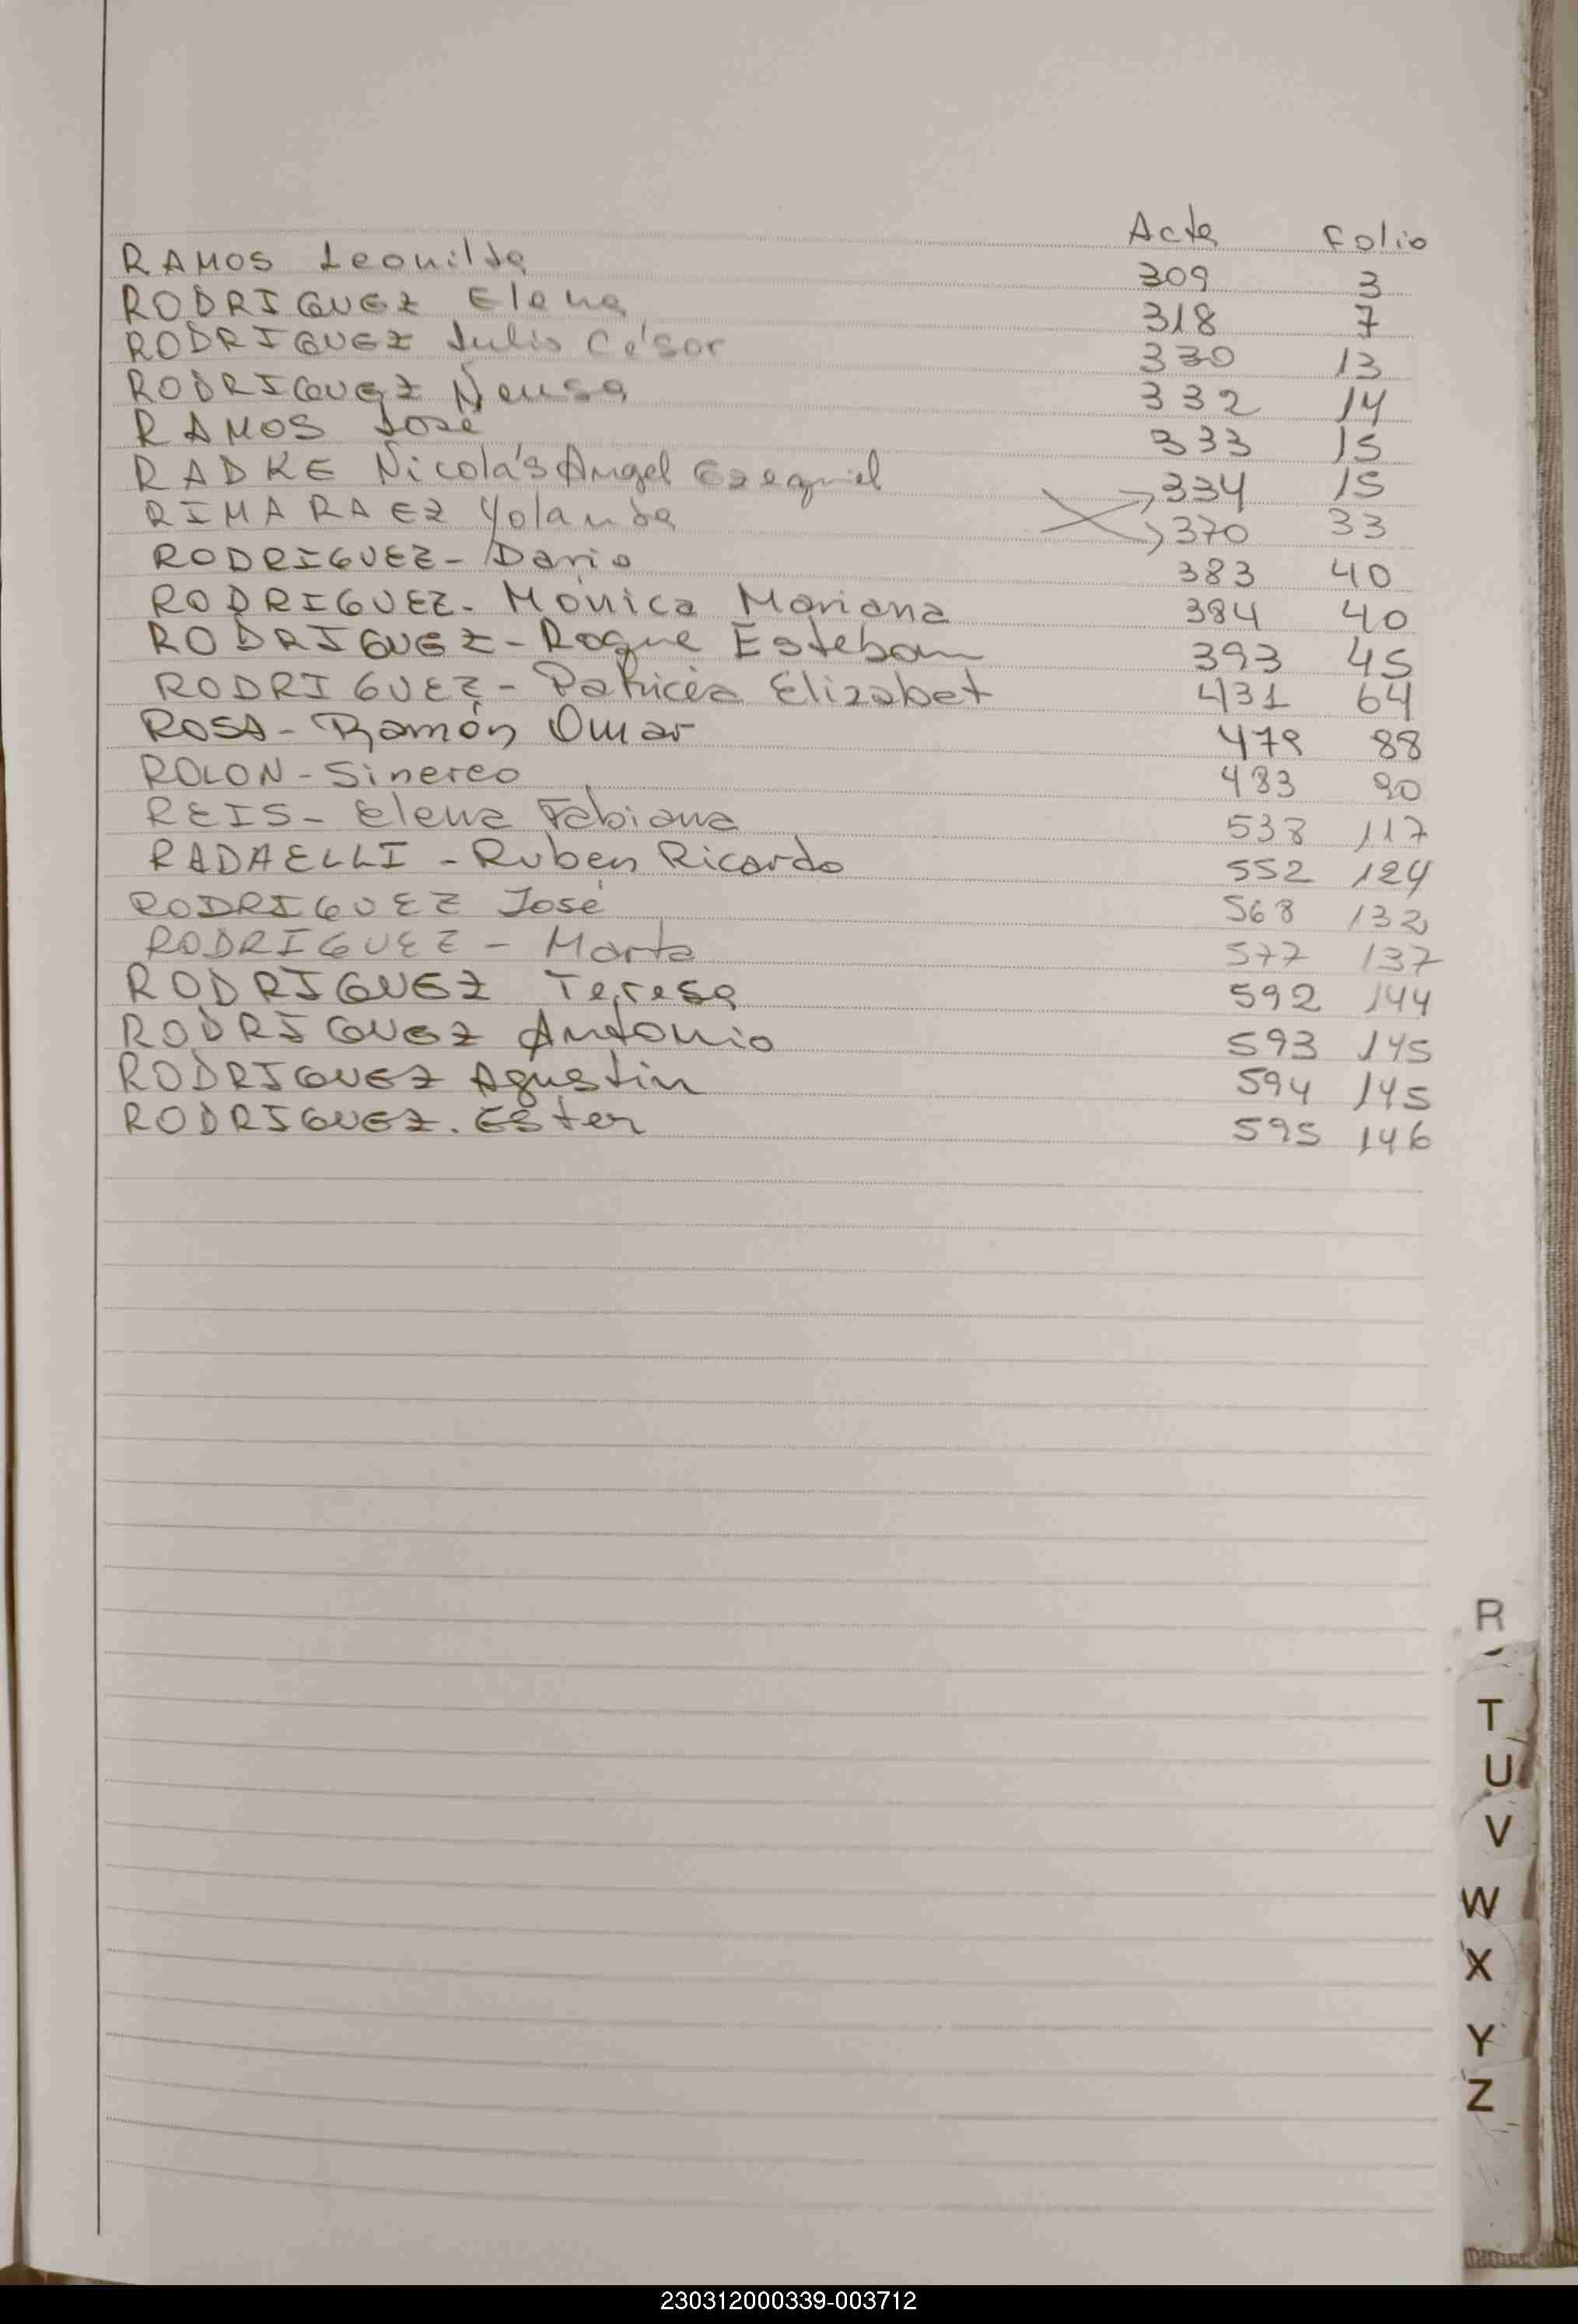 Acta Folio
RAMOS Leonilda 309 3
RODRIGUEZ Elena 318 7
RODRIGUEZ Julio César 330 13
RODRIGUEZ Neusa 332 14
RAMOS José 333 15
RADKE Nicolás Angel Ezequiel 334 15
RIMARAEZ Yolanda 370 33
RODRIGUEZ - Dario 383 40
RODRIGUEZ. Mónica Mariana 384 40
RODRIGUEZ - Roque Esteban 393 45
RODRIGUEZ - Patricia Elizabet 431 64
ROSA - Ramón Omar 479 88
ROLON - Sinereo 483 90
REIS - Elena Fabiana 538 117
RADAELLI - Ruben Ricardo 552 124
RODRIGUEZ José 568 132
RODRIGUEZ - Marta 577 137
RODRIGUEZ Teresa 592 144
RODRIGUEZ Antonio 593 145
RODRIGUEZ Agustin 594 145
RODRIGUEZ. Ester 595 146
R
T
U
V
W
X
Y
Z
230312000339-003712